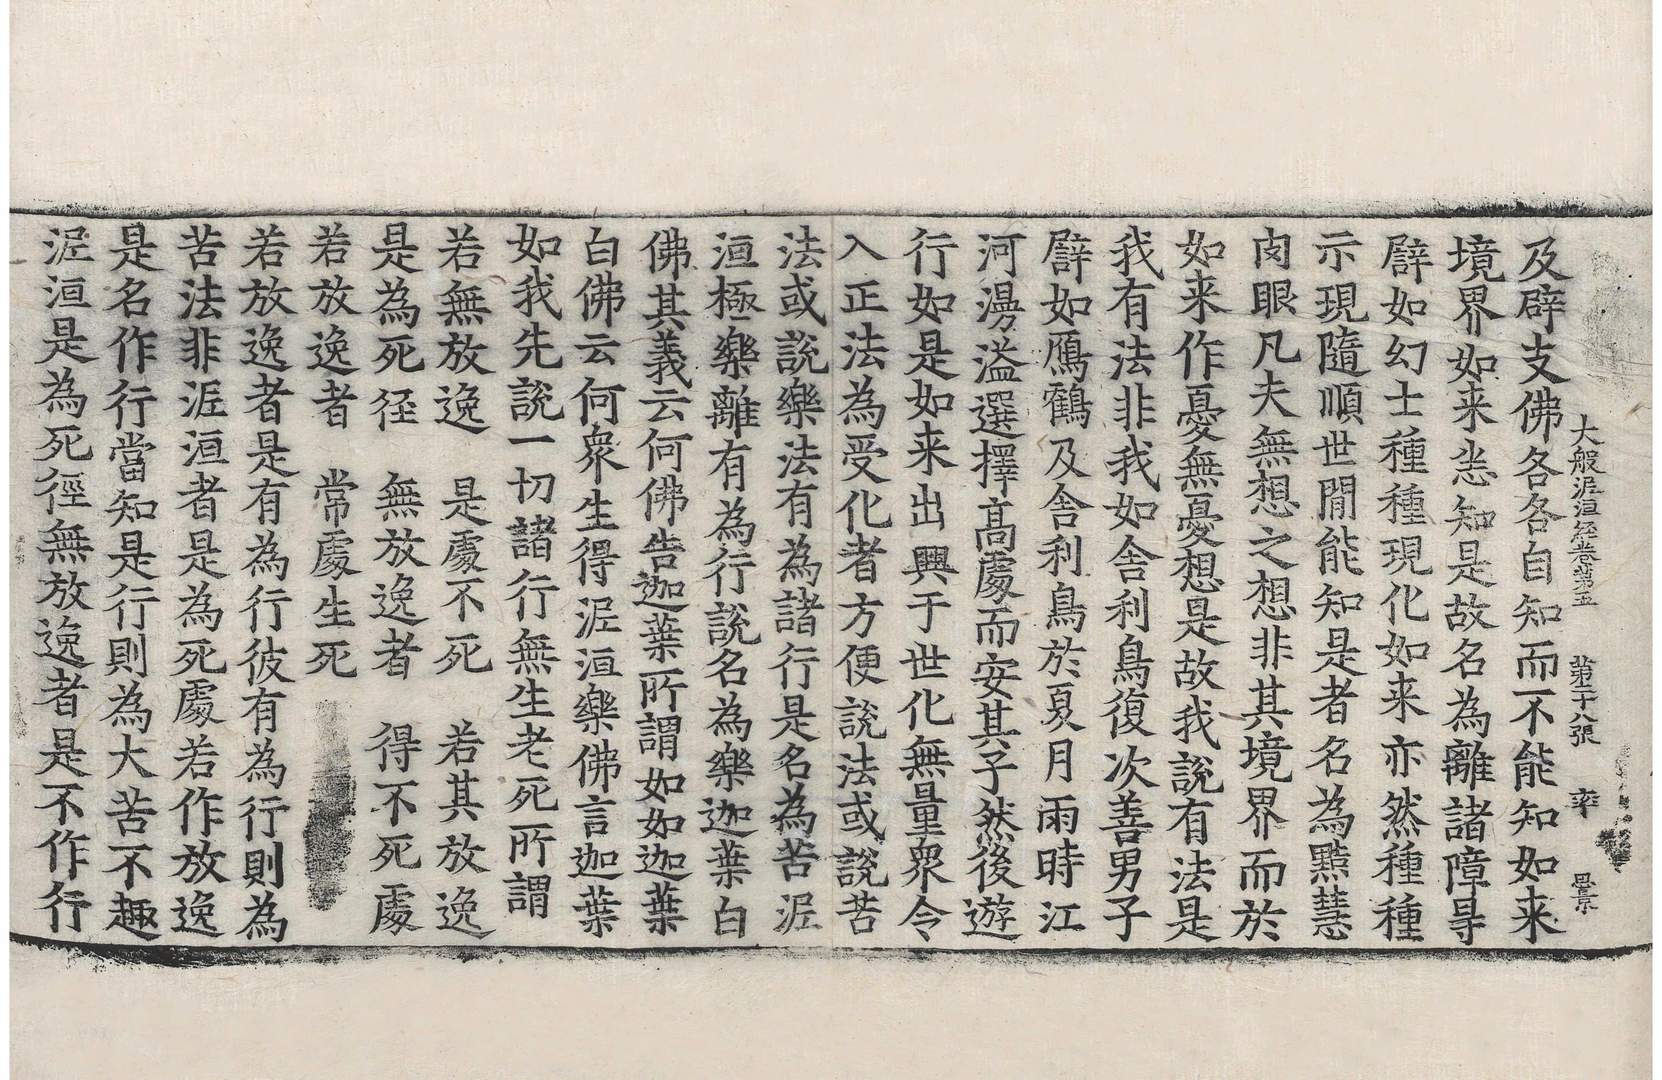 大般泥洹経卷第五 第十八張 率
及辟支佛各各自知而不能知如来
境界如来悉知是故名為離諸障㝵
譬如幻士種種現化如来亦然種種
示現隨順世間能知是者名為黠慧
肉眼凡夫無想之想非其境界而於
如来作憂無憂想是故我說有法是
我有法非我如舍利鳥復次善男子
譬如鴈鶴及舍利鳥於夏月雨時江
河漫溢選擇高處而安其子然後遊
行如是如来出興于世化無量衆令
入正法為受化者方便說法或說苦
法或說樂法有為諸行是名為苦泥
洹極樂離有為行說名為樂迦葉白
佛其義云何佛告迦葉所謂如如迦葉
白佛云何衆生得泥洹樂佛言迦葉
如我先說一切諸行無生老死所謂
若無放逸 是處不死 若其放逸
是為死径 無放逸者 得不死處
若放逸者 常處生死
若放逸者是有為行彼有為行則為
苦法非泥洹者是為死處若作放逸
是名作行當知是行則為大苦不趣
泥洹是為死徑無放逸者是不作行